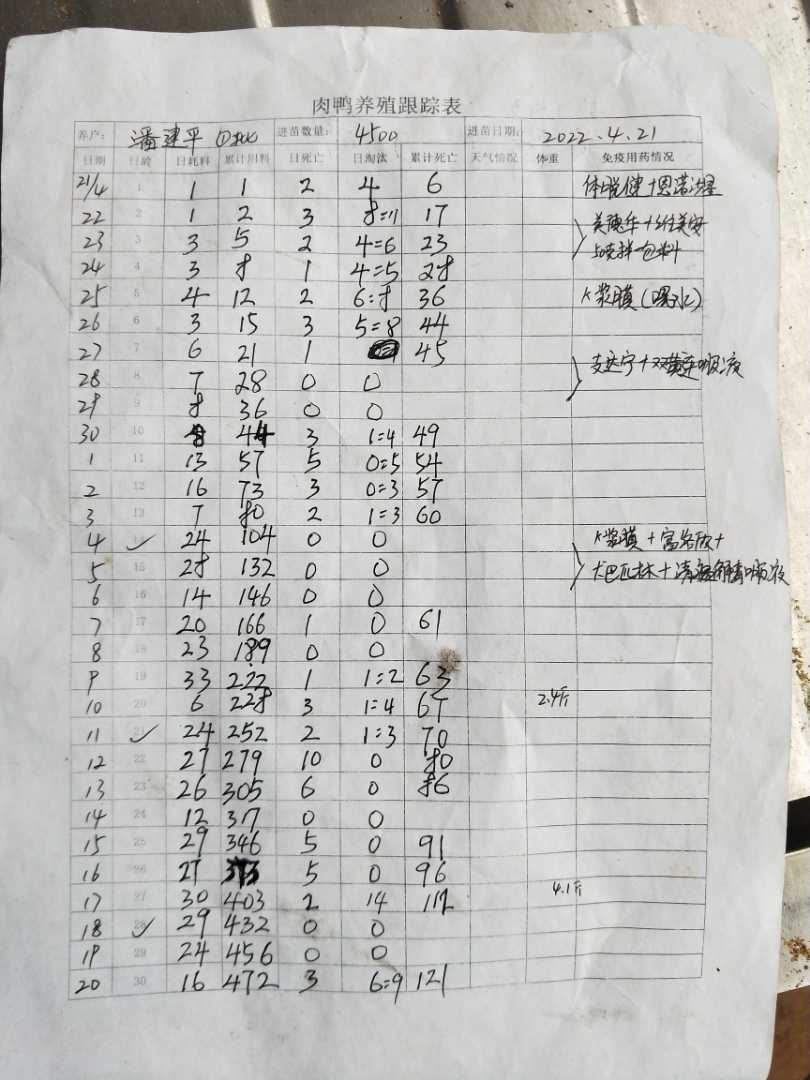 肉鸭养殖跟踪表
养户: 潘建平 进苗数量: 4500 进苗日期: 2022.4.21
日期 日龄 日耗料 累计用料 日死亡 日淘汰 累计死亡 天气情况 体重 免疫用药情况
21/4 1 1 1 2 4 6
22 2 1 2 3 8=11 17
23 3 3 5 2 4=6 23
24 4 3 8 1 4=5 28
25 5 4 12 2 6=8 36 K浆膜(喂水)
26 6 3 15 3 5=8 44
27 7 6 21 1 45
28 8 7 28 0 0
29 9 8 36 0 0
30 10 8 44 3 1=4 49
1 11 13 57 5 0=5 54
2 12 16 73 3 0=3 57
3 13 7 80 2 1=3 60
4 14 ✓ 24 104 0 0 K浆膜+
5 15 28 132 0 0
6 16 14 146 0 0
7 17 20 166 1 0 61
8 18 23 189 0 0
9 19 33 222 1 1=2 63
10 20 6 228 3 1=4 67 2.4斤
11 21 ✓ 24 252 2 1=3 70
12 22 27 279 10 0 80
13 23 26 305 6 0 86
14 24 12 317 0 0
15 25 29 346 5 0 91
16 26 27 373 5 0 96
17 27 30 403 2 14 112 4.1斤
18 28 ✓ 29 432 0 0
19 29 24 456 0 0
20 30 16 472 3 6=9 121